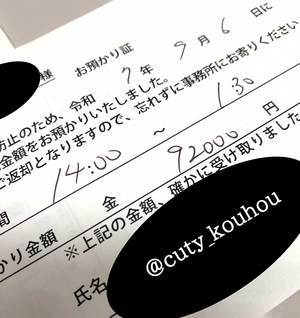 様 お預かり証
防止のため、令和 7年 9月 6日に
金額をお預かりいたしました。
ご返却となりますので、忘れずに事務所にお寄りください
間 14:00 ～ 1:30
かり金額 金 92000 円
※上記の金額、確かに受け取りました
氏名
@cuty_kouhou